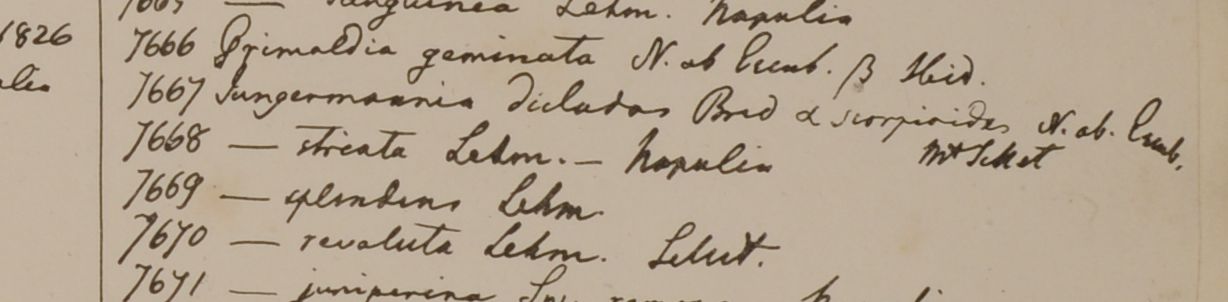 7665 — sanguinea Lehm. Napulia
1826
7666 Grimaldia geminata N. ab Esenb. β Ibid.
7667 Jungermannia diclados Brid α scorpioides N. ab. Esenb.
7668 — striata Lehm. — Napulia Mt
7669 — splendens Lehm.
7670 — revoluta Lehm.
7671 — juniperina